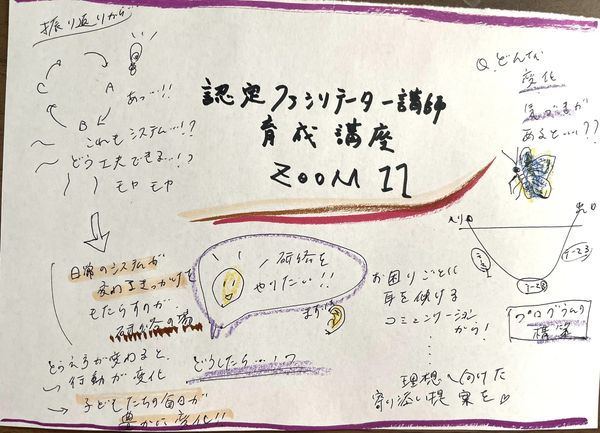 振り返りから…
A
B
C
あっ…!!
これもシステム…!?
どう工夫できる…!?
モヤモヤ
認定ファシリテーター講師
育成講座
ZOOM 11
Q.どんな
変化
があると…??
入り口
出口
日常のシステムが
変わるきっかけを
もたらすのが、
研修の場
とらえ方が変わると、
→行動が変化
→子どもたちの毎日が
豊かに変化!!
研修を
やりたい!!
まずは
どうしたら…!?
お困りごとに
耳を傾ける
コミュニケーション
から!
理想へ向けた
寄り添い提案を♡
プログラムの
構築